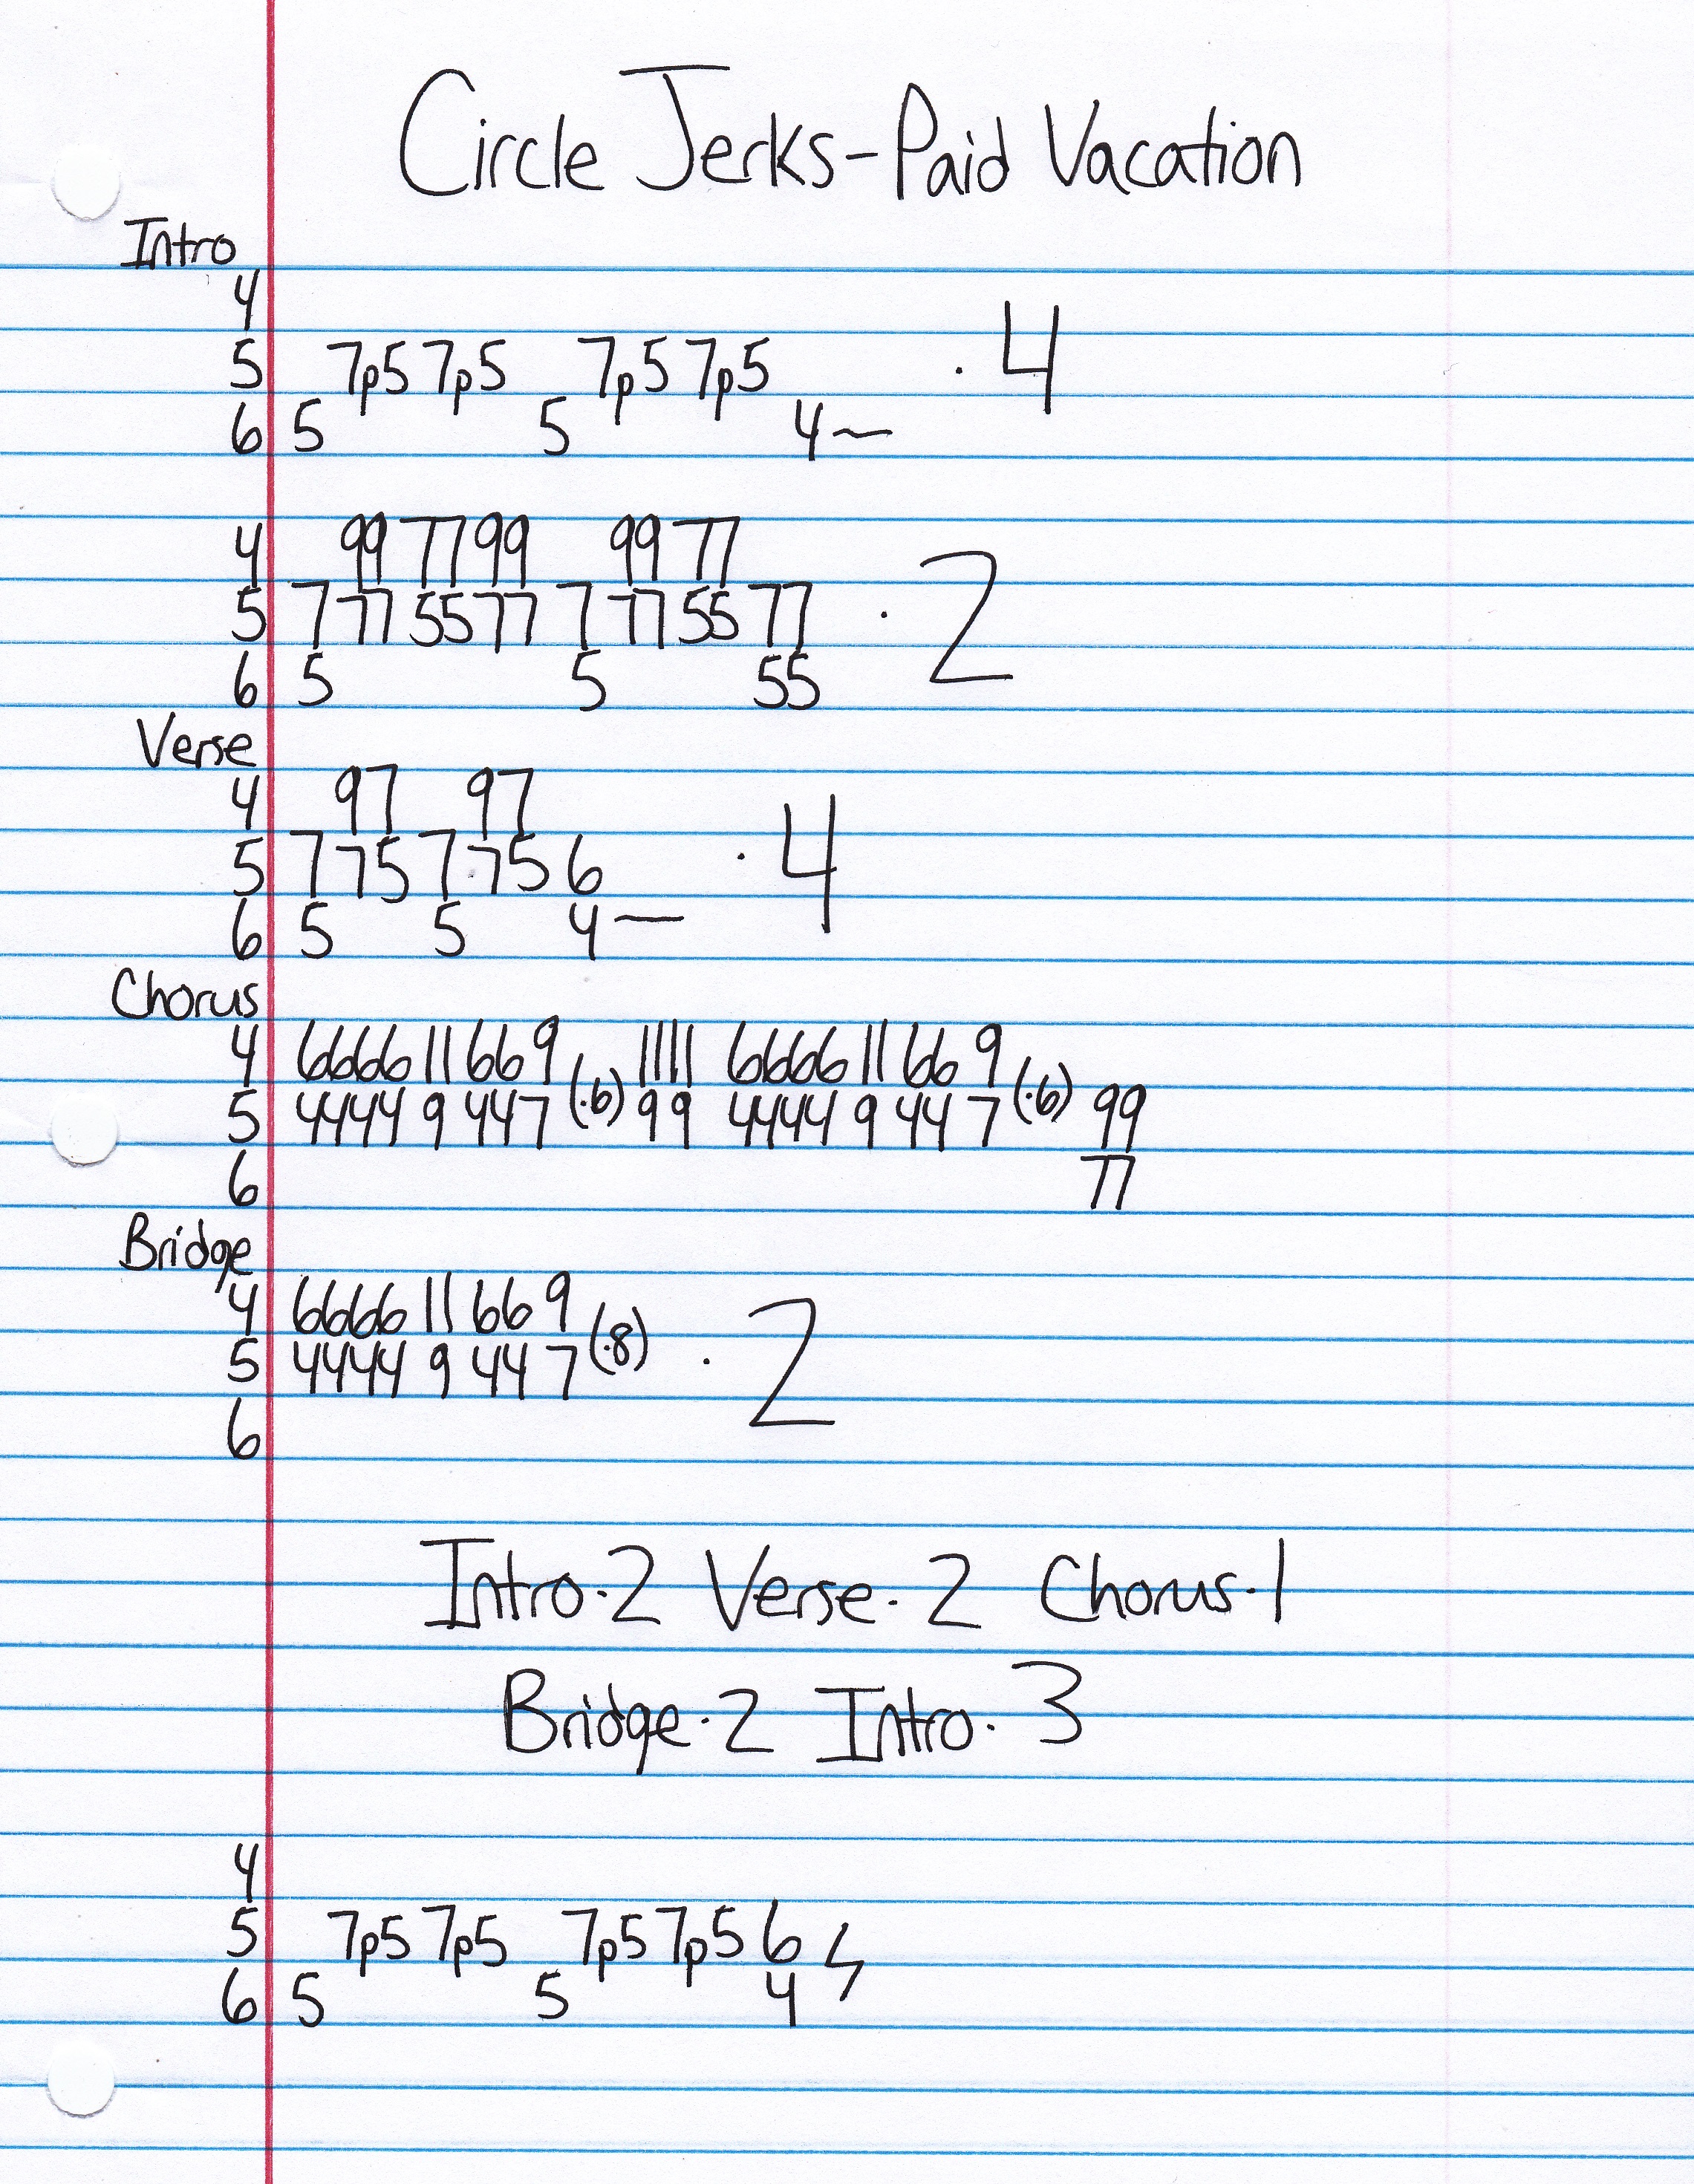 Circle Jerks-Paid Vacation
Intro
4
5 7p5 7p5 7p5 7p5 · 4
6 5 5 4~
4 99 77 99 99 77
5 7 77 55 77 7 77 55 77 · 2
6 5 5 55
Verse
4 97 97
5 7 75 7 75 6 · 4
6 5 5 4—
Chorus
4 6666 11 66 9 1111 6666 11 66 9
5 4444 9 44 7 (·6) 99 4444 9 44 7 (·6) 99
6 77
Bridge
4 6666 11 66 9
5 4444 9 44 7 (·8) · 2
6
Intro·2 Verse·2 Chorus·1
Bridge·2 Intro·3
4
5 7p5 7p5 7p5 7p5 6
6 5 5 4